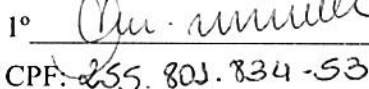 1º
CPF: 255.801.834-53